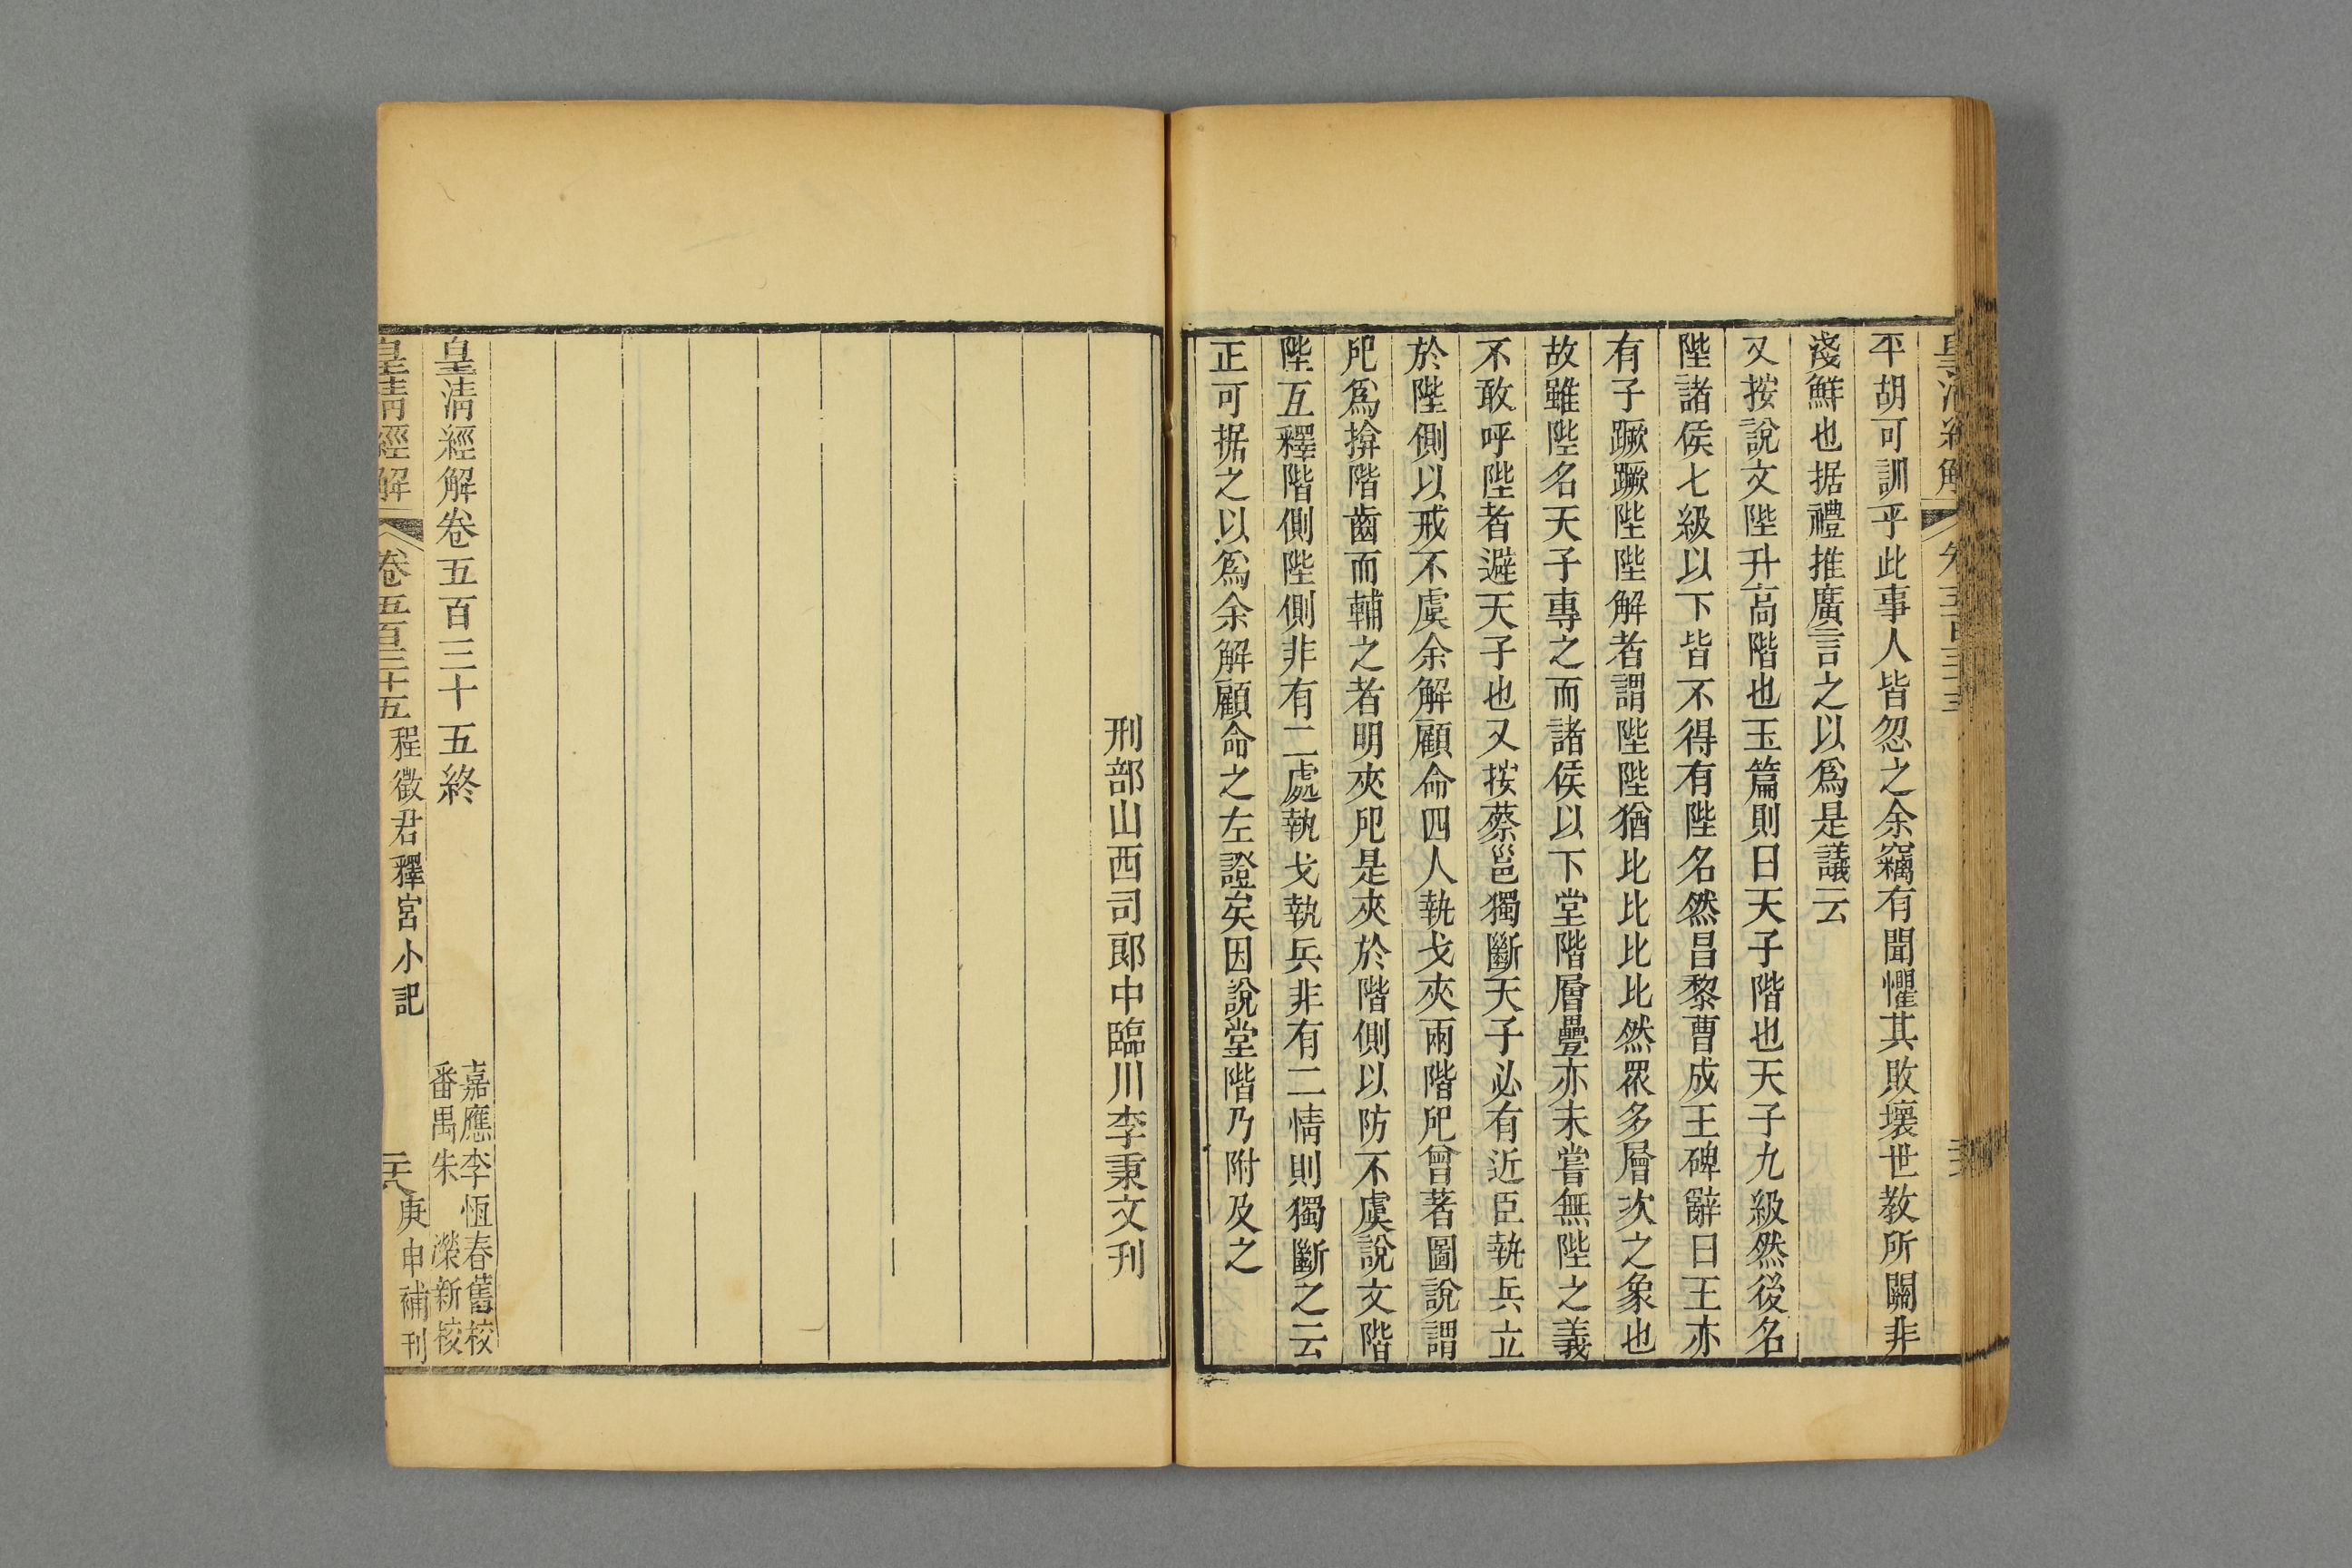 平胡可訓乎此事人皆忽之余竊有聞懼其敗壞世教所關非
淺鮮也据禮推廣言之以爲是議云
又按說文陛升高階也玉篇則曰天子階也天子九級然後名
陛諸侯七級以下皆不得有陛名然昌黎曹成王碑辭曰王亦
有子蹶蹶陛陛解者謂陛陛猶比比比比然眾多層次之象也
故雖陛名天子專之而諸侯以下堂階層疊亦未嘗無陛之義
不敢呼陛者避天子也又按蔡邕獨斷天子必有近臣執兵立
於陛側以戒不虞余解顧命四人執戈夾兩階戺曾著圖說謂
戺爲揜階齒而輔之者明夾戺是夾於階側以防不虞說文階
陛互釋階側陛側非有二處執戈執兵非有二情則獨斷之云
正可据之以爲余解顧命之左證矣因說堂階乃附及之
刑部山西司郎中臨川李秉文刊
皇淸經解卷五百三十五終
嘉應李恆春舊校
番禺朱 濚新校
皇淸經解 卷五百三十五 程徵君釋宮小記
庚申補刊